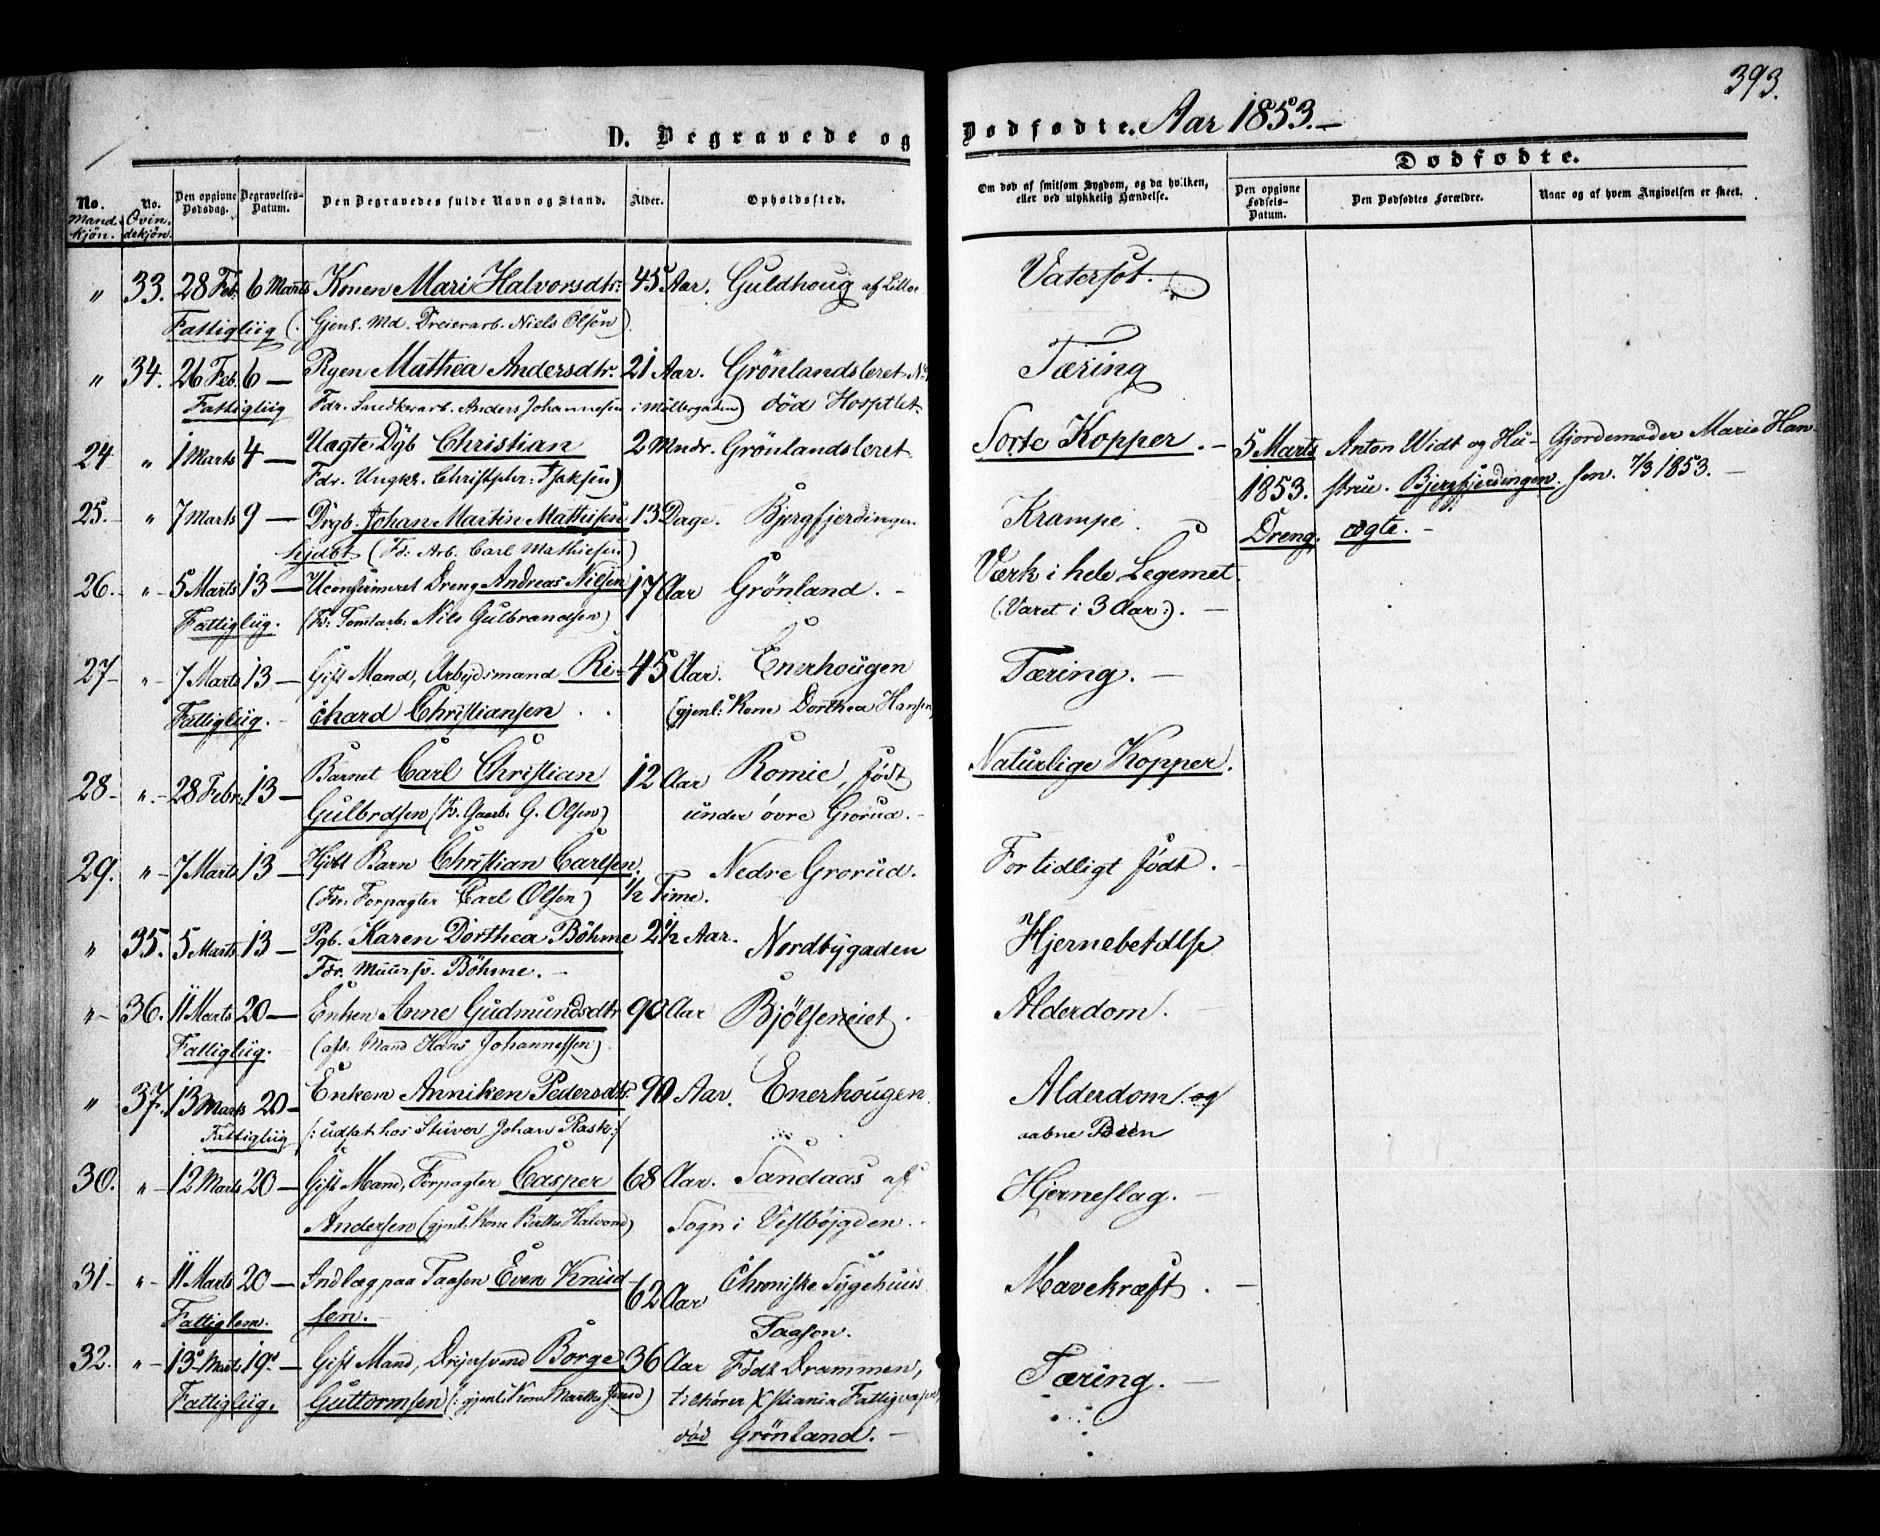 393.
D. Begravede og Dødfødte. Aar 1853.—
Dødfødte.
No. Mand-kjön.
No. Qvin-dekjön.
Den opgivne Dødsdag.
Begravelses-Datum.
Den Begravedes fulde Navn og Stand.
Alder.
Opholdssted.
Om død af smitsom Sygdom, og da hvilken, eller ved ulykkelig Hændelse.
Den opgivne Fødsels-Datum.
Den Dødfødtes Forældre.
Naar og af hvem Angivelsen er skeet.
" 33. 28 Feb. 6 Marts Konen Mari Halvorsdtr. 45 Aar. Guldhoug af Lilloe Vatersot.
Fattigliig (Gjenl. Md. Dreierarb. Niels Olsen)
" 34. 26 Feb. 6 — Pigen Mathea Andersdtr. 21 Aar. Grönlandsleret Tæring
Fattigliig Fdr. Snedkerarb. Anders Johannesen i Möllergaden) död Hosptlet.
24 " 1 Marts 4 — Uægte Dgb Christian 2 Mndr. Grönlandsleret Sorte Kopper. — 5 Marts Anton Widt og Hu- Gjordemoder Marie Han-
Fdr. Ungkr. Christopher Isaksen) 1853. strue. Bjergfjerdingen. sen. 7/3 1853. —
25. " 7 Marts 9 — Drgb. Johan Martin Mathisen 13 Dage. Bjergfjerdingen Krampe. Dreng, ægte. —
hjdöt (Fdr. Arb. Carl Mathiesen)
26. " 5 Marts 13 — Uconfirmeret Dreng Andreas Nilsen 17 Aar Grönland. — Værk i hele Legemet.
Fattigliig. (Fdr. Tomtarb. Nils Gulbrandsen) (Varet i 3 Aar). —
27 " 7 Marts 13 — Gift Mand, Arbejdsmand Ri- 45 Aar. Enerhougen Tæring. —
Fattigliig. chard Christiansen (gjenl. Kone Dorthea Hansen)
28 " 28 Febr. 13 — Barnet Carl Christian 12 Aar Romie, født Naturlige Kopper.
Gulbrdsen (F. Gaarb. G. Olsen) under övre Grorud.
29. " 7 Marts 13 — Hjdöbt Barn Christian Carlsen. 1/2 Time. Nedre Grorud. For tidligt født. —
(Fdr. Forpagter Carl Olsen)
" 35. 5 Marts 13 — Pgb. Karen Dorthea Böhme 2 1/2 Aar. Nordbygaden Hjernebetdlse
Fdr. Muursv. Böhme. —
" 36. 11 Marts 20 — Enken Anne Gudmundsdtr 90 Aar Bjölseneiet. Alderdom. —
Fattigliig. (afd. Mand Hans Johannessen)
" 37. 13 Marts 20 — Enken Anniken Pedersdtr. 90 Aar. Enerhougen. Alderdom og
Fattigliig (: udsat hos Skriver Johan Rask :) aabne Been
30. " 12 Marts 20 — Gift Mand, Forpagter Casper 68 Aar. Sandaas af Hjerneslag. —
Andersen (gjenl. Kone Berthe Halvorsd) Sogn i Vestböjgden.
31 " 11 Marts 20 — Indlæg paa Taasen Even Knud- 62 Aar Chroniske Sygehuus Mavekræft. —
Fattiglem. sen. Taasen.
32. " 13 Marts 19 — Gift Mand, Drejersvend Börge 36 Aar Födt Drammen, Tæring. —
Fattigliig. Guttormsen (: gjenl. Kone Marthe) tilhörer Xstiania Fattigvæsen,
död Grönland. —